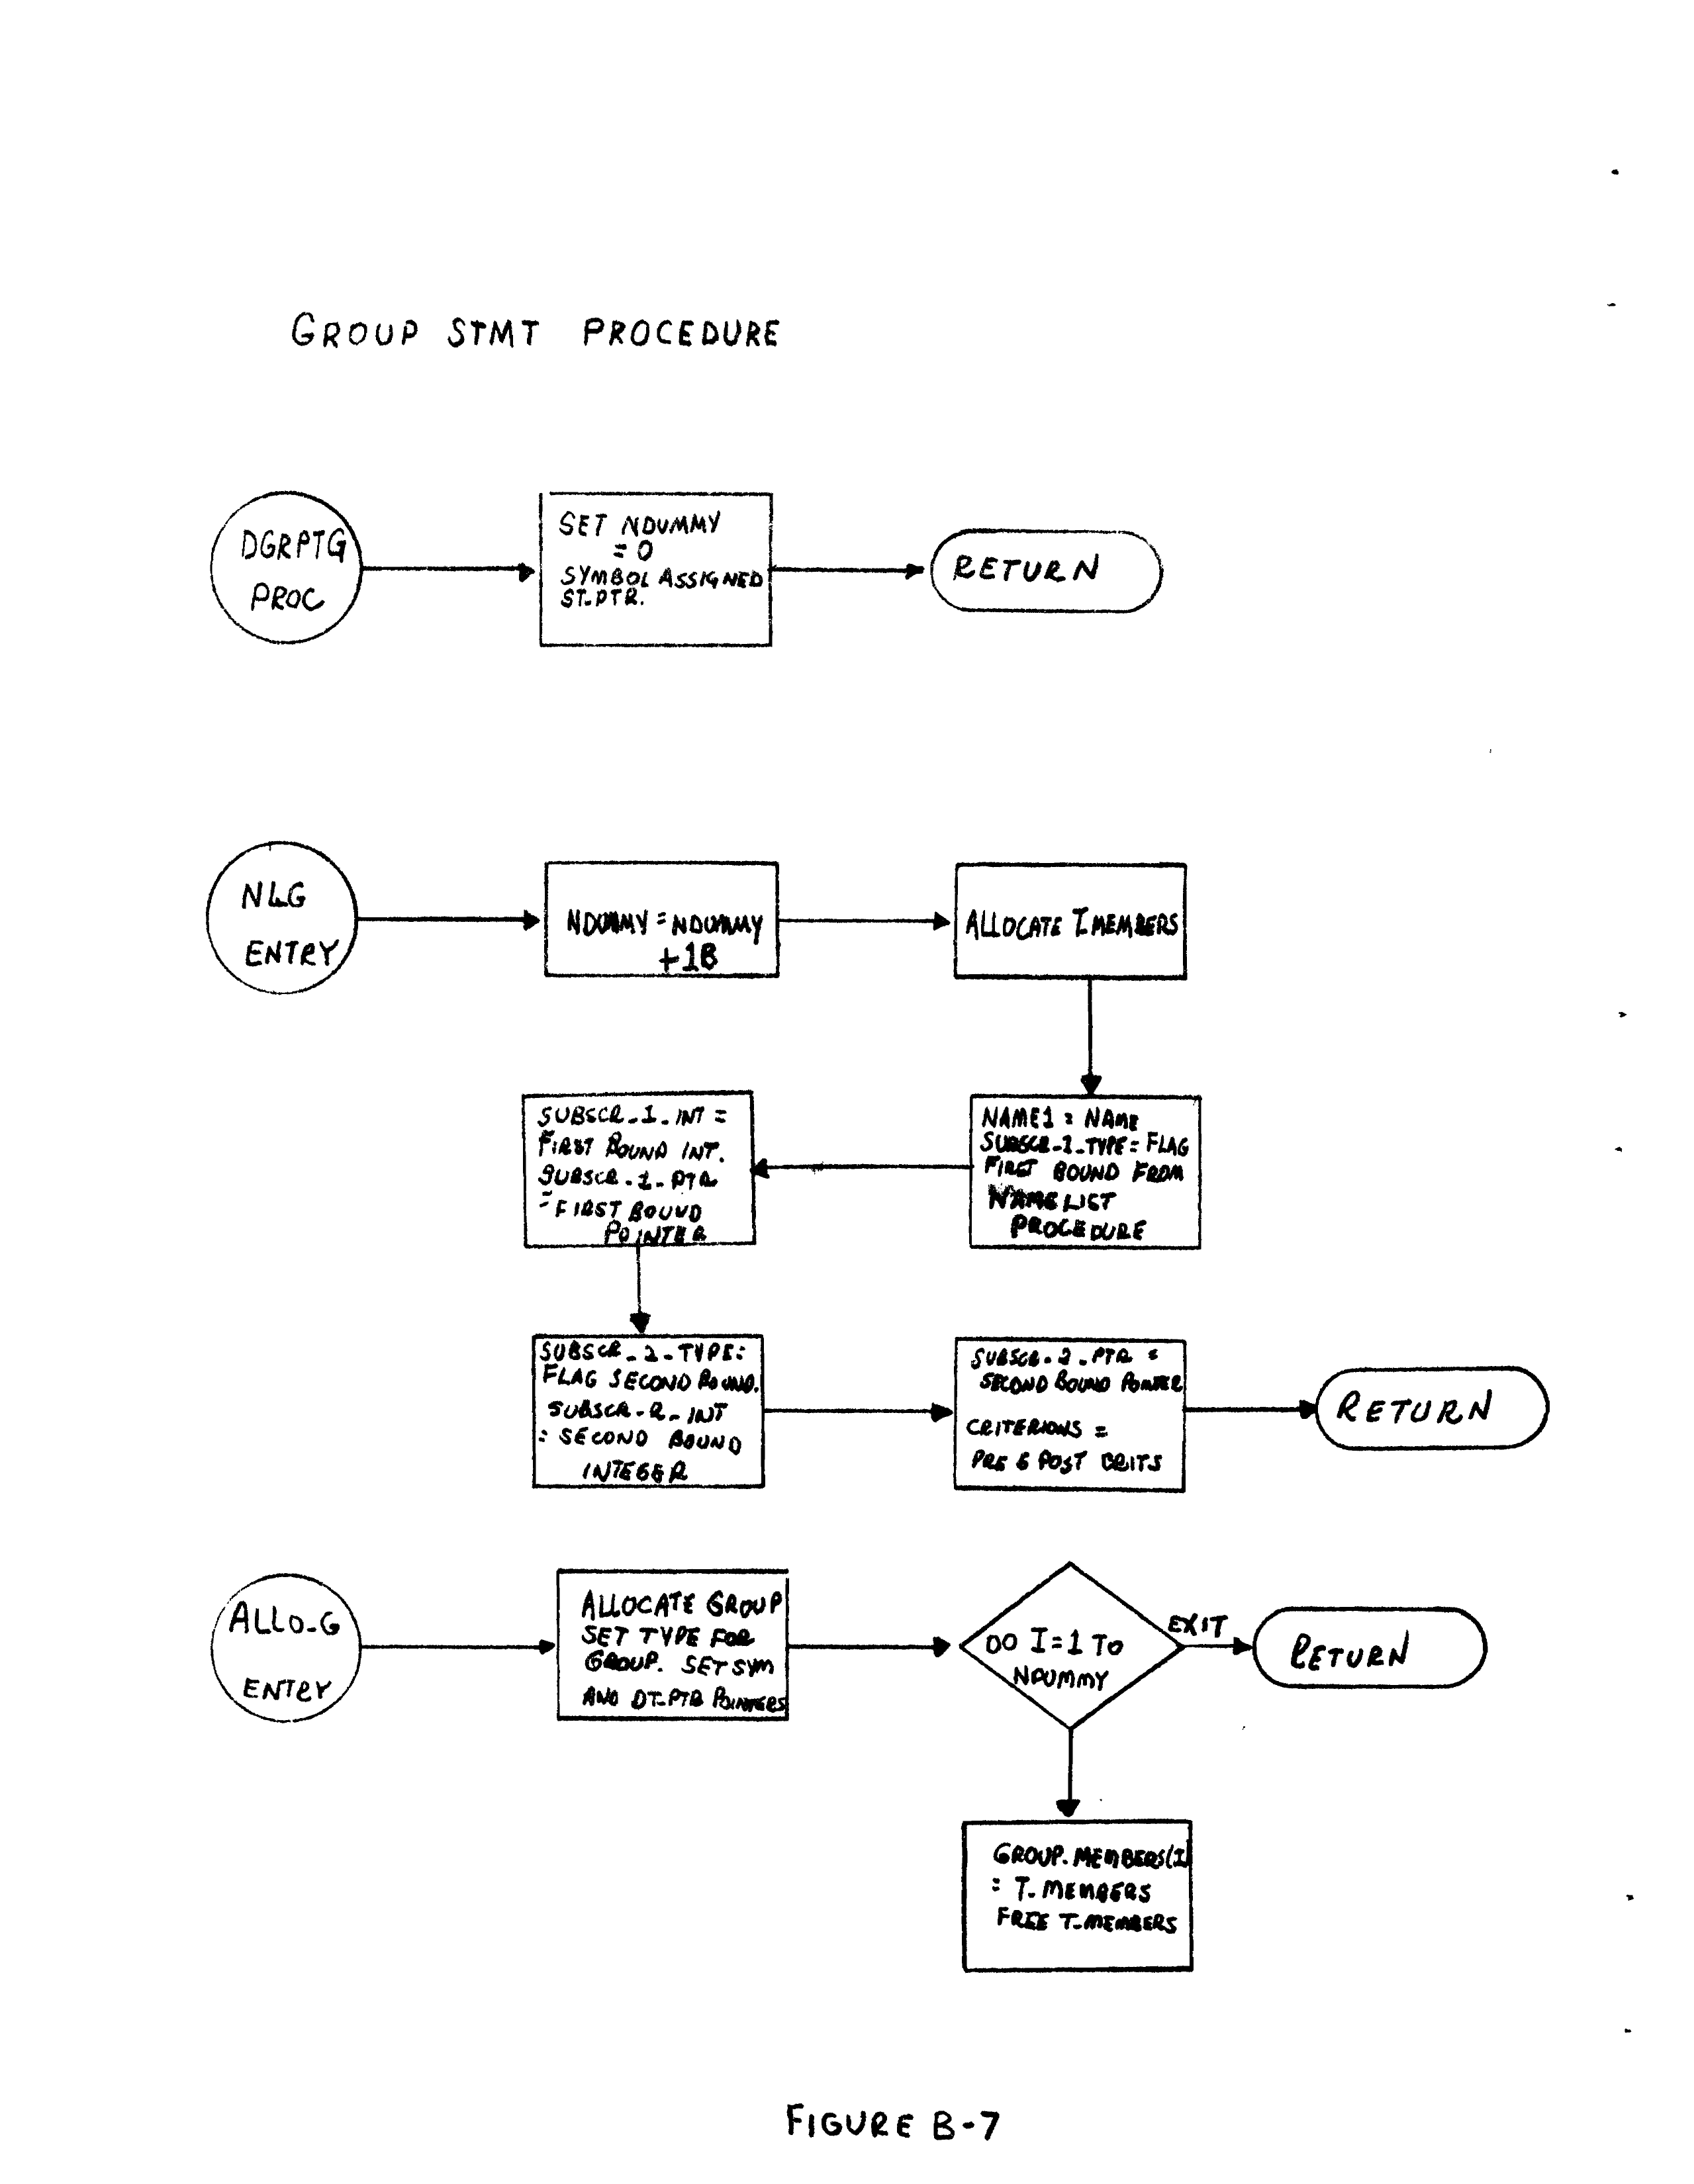 GROUP STMT PROCEDURE
DGRPTG
PROC
SET NDUMMY
= 0
SYMBOL ASSIGNED
ST-PTR.
RETURN
NLG
ENTRY
NDUMMY = NDUMMY
+1B
ALLOCATE T.MEMBERS
NAME1 = NAME
SUBSCR_1_TYPE = FLAG
FIRST BOUND FROM
NAMELIST
PROCEDURE
SUBSCR_1_INT =
FIRST BOUND INT.
SUBSCR_1_PTR
= FIRST BOUND
POINTER
SUBSCR_2_TYPE=
FLAG SECOND BOUND.
SUBSCR_2_INT
= SECOND BOUND
INTEGER
SUBSCR_2_PTR =
SECOND BOUND POINTER
CRITERIONS =
PRE & POST CRITS
RETURN
ALLO_G
ENTRY
ALLOCATE GROUP
SET TYPE FOR
GROUP. SET SYM
AND DT-PTR POINTERS
DO I=1 TO
NDUMMY
EXIT
RETURN
GROUP.MEMBERS(I)
= T-MEMBERS
FREE T-MEMBERS
FIGURE B-7